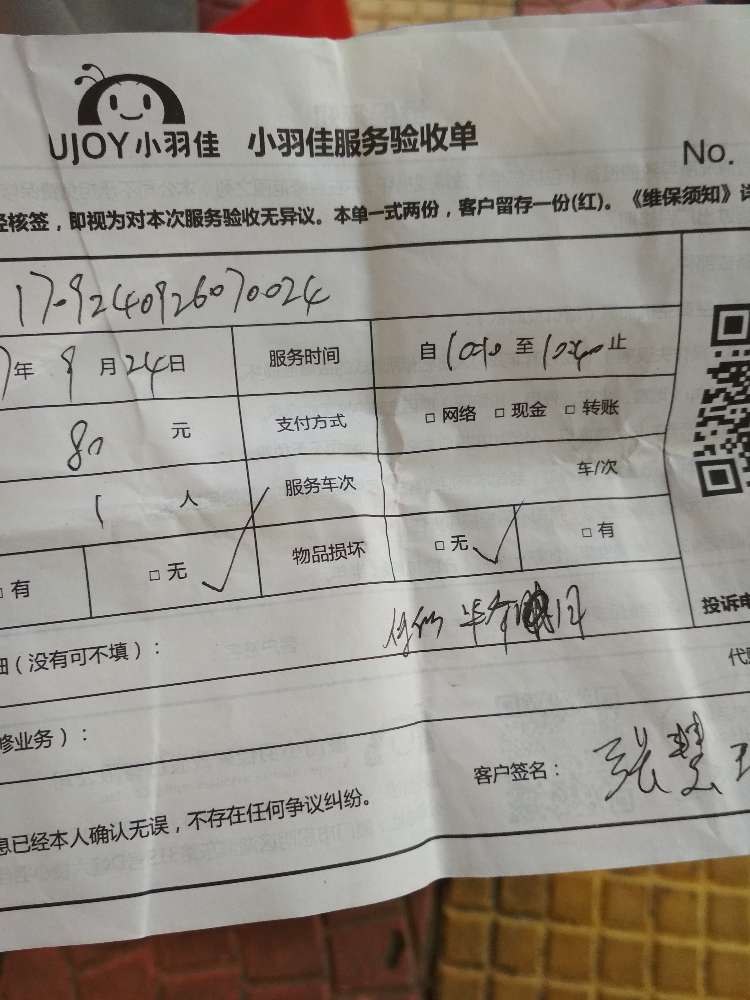 UJOY小羽佳 小羽佳服务验收单
No.
经核签，即视为对本次服务验收无异议。本单一式两份，客户留存一份(红)。《维保须知》详
1709240926070024
7年 9月24日 服务时间 自 至 止
80 元 支付方式 □ 网络 □ 现金 □ 转账
1 人 服务车次 车/次
□ 有 □ 无 ✓ 物品损坏 □ 无 ✓ □ 有
投诉电
细（没有可不填）：
代
修业务）：
客户签名： 张慧
息已经本人确认无误，不存在任何争议纠纷。